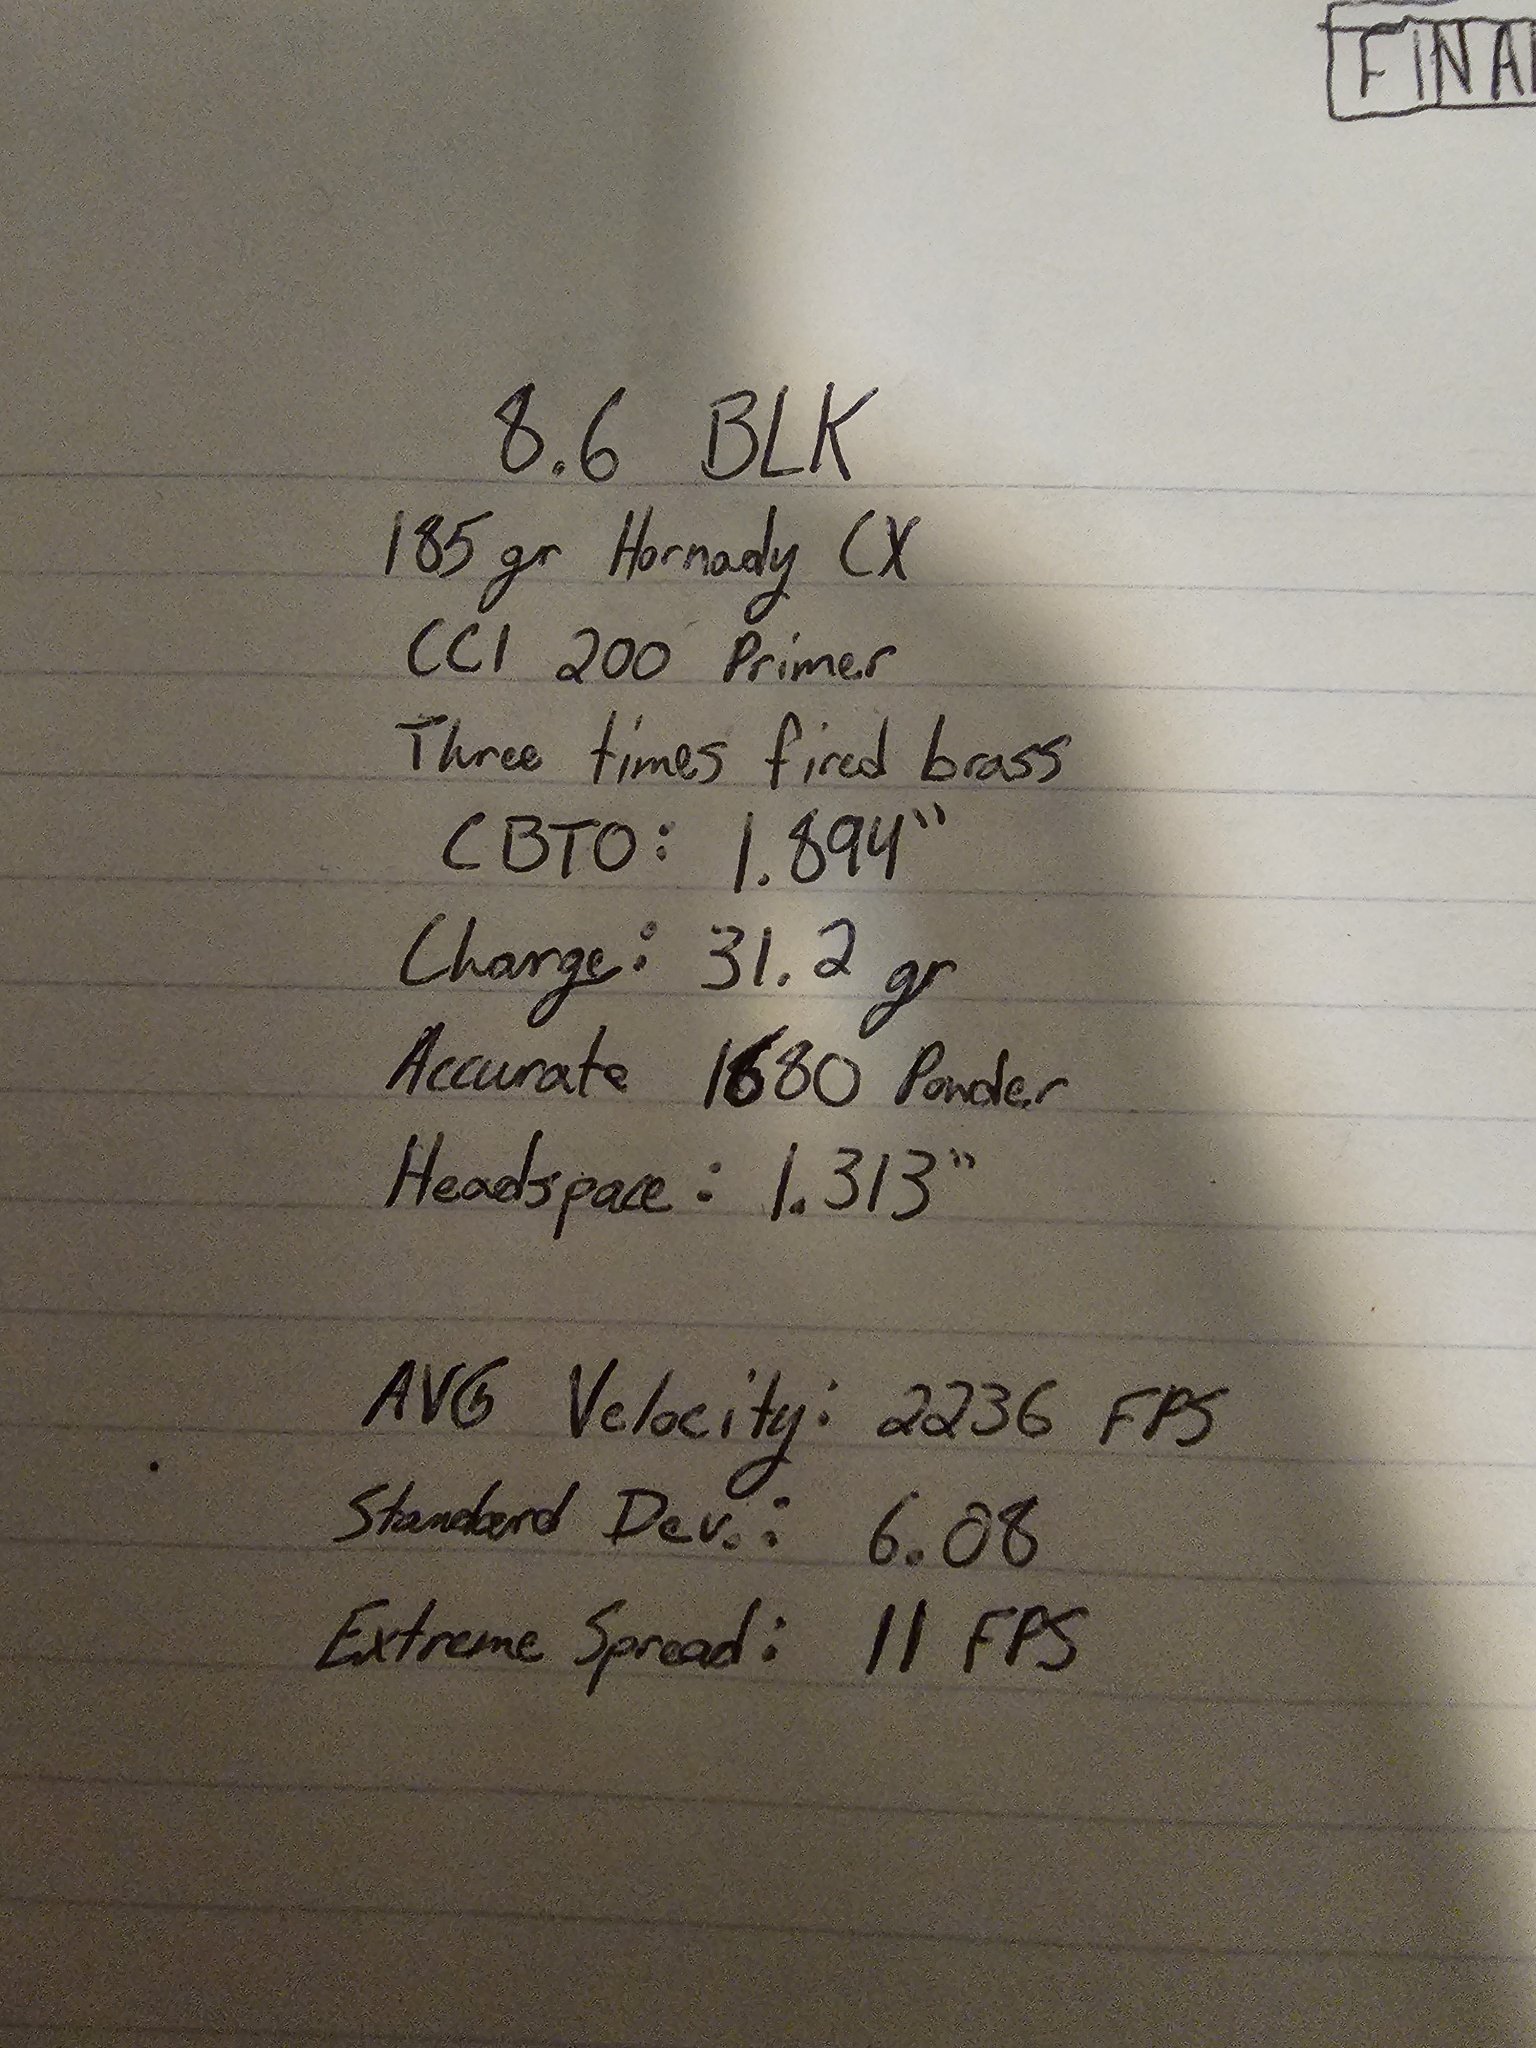 FINAL
8.6 BLK
185 gr Hornady CX
CCI 200 Primer
Three times fired brass
CBTO: 1.894"
Charge: 31.2 gr
Accurate 1680 Powder
Headspace: 1.313"
AVG Velocity: 2236 FPS
Standard Dev.: 6.08
Extreme Spread: 11 FPS